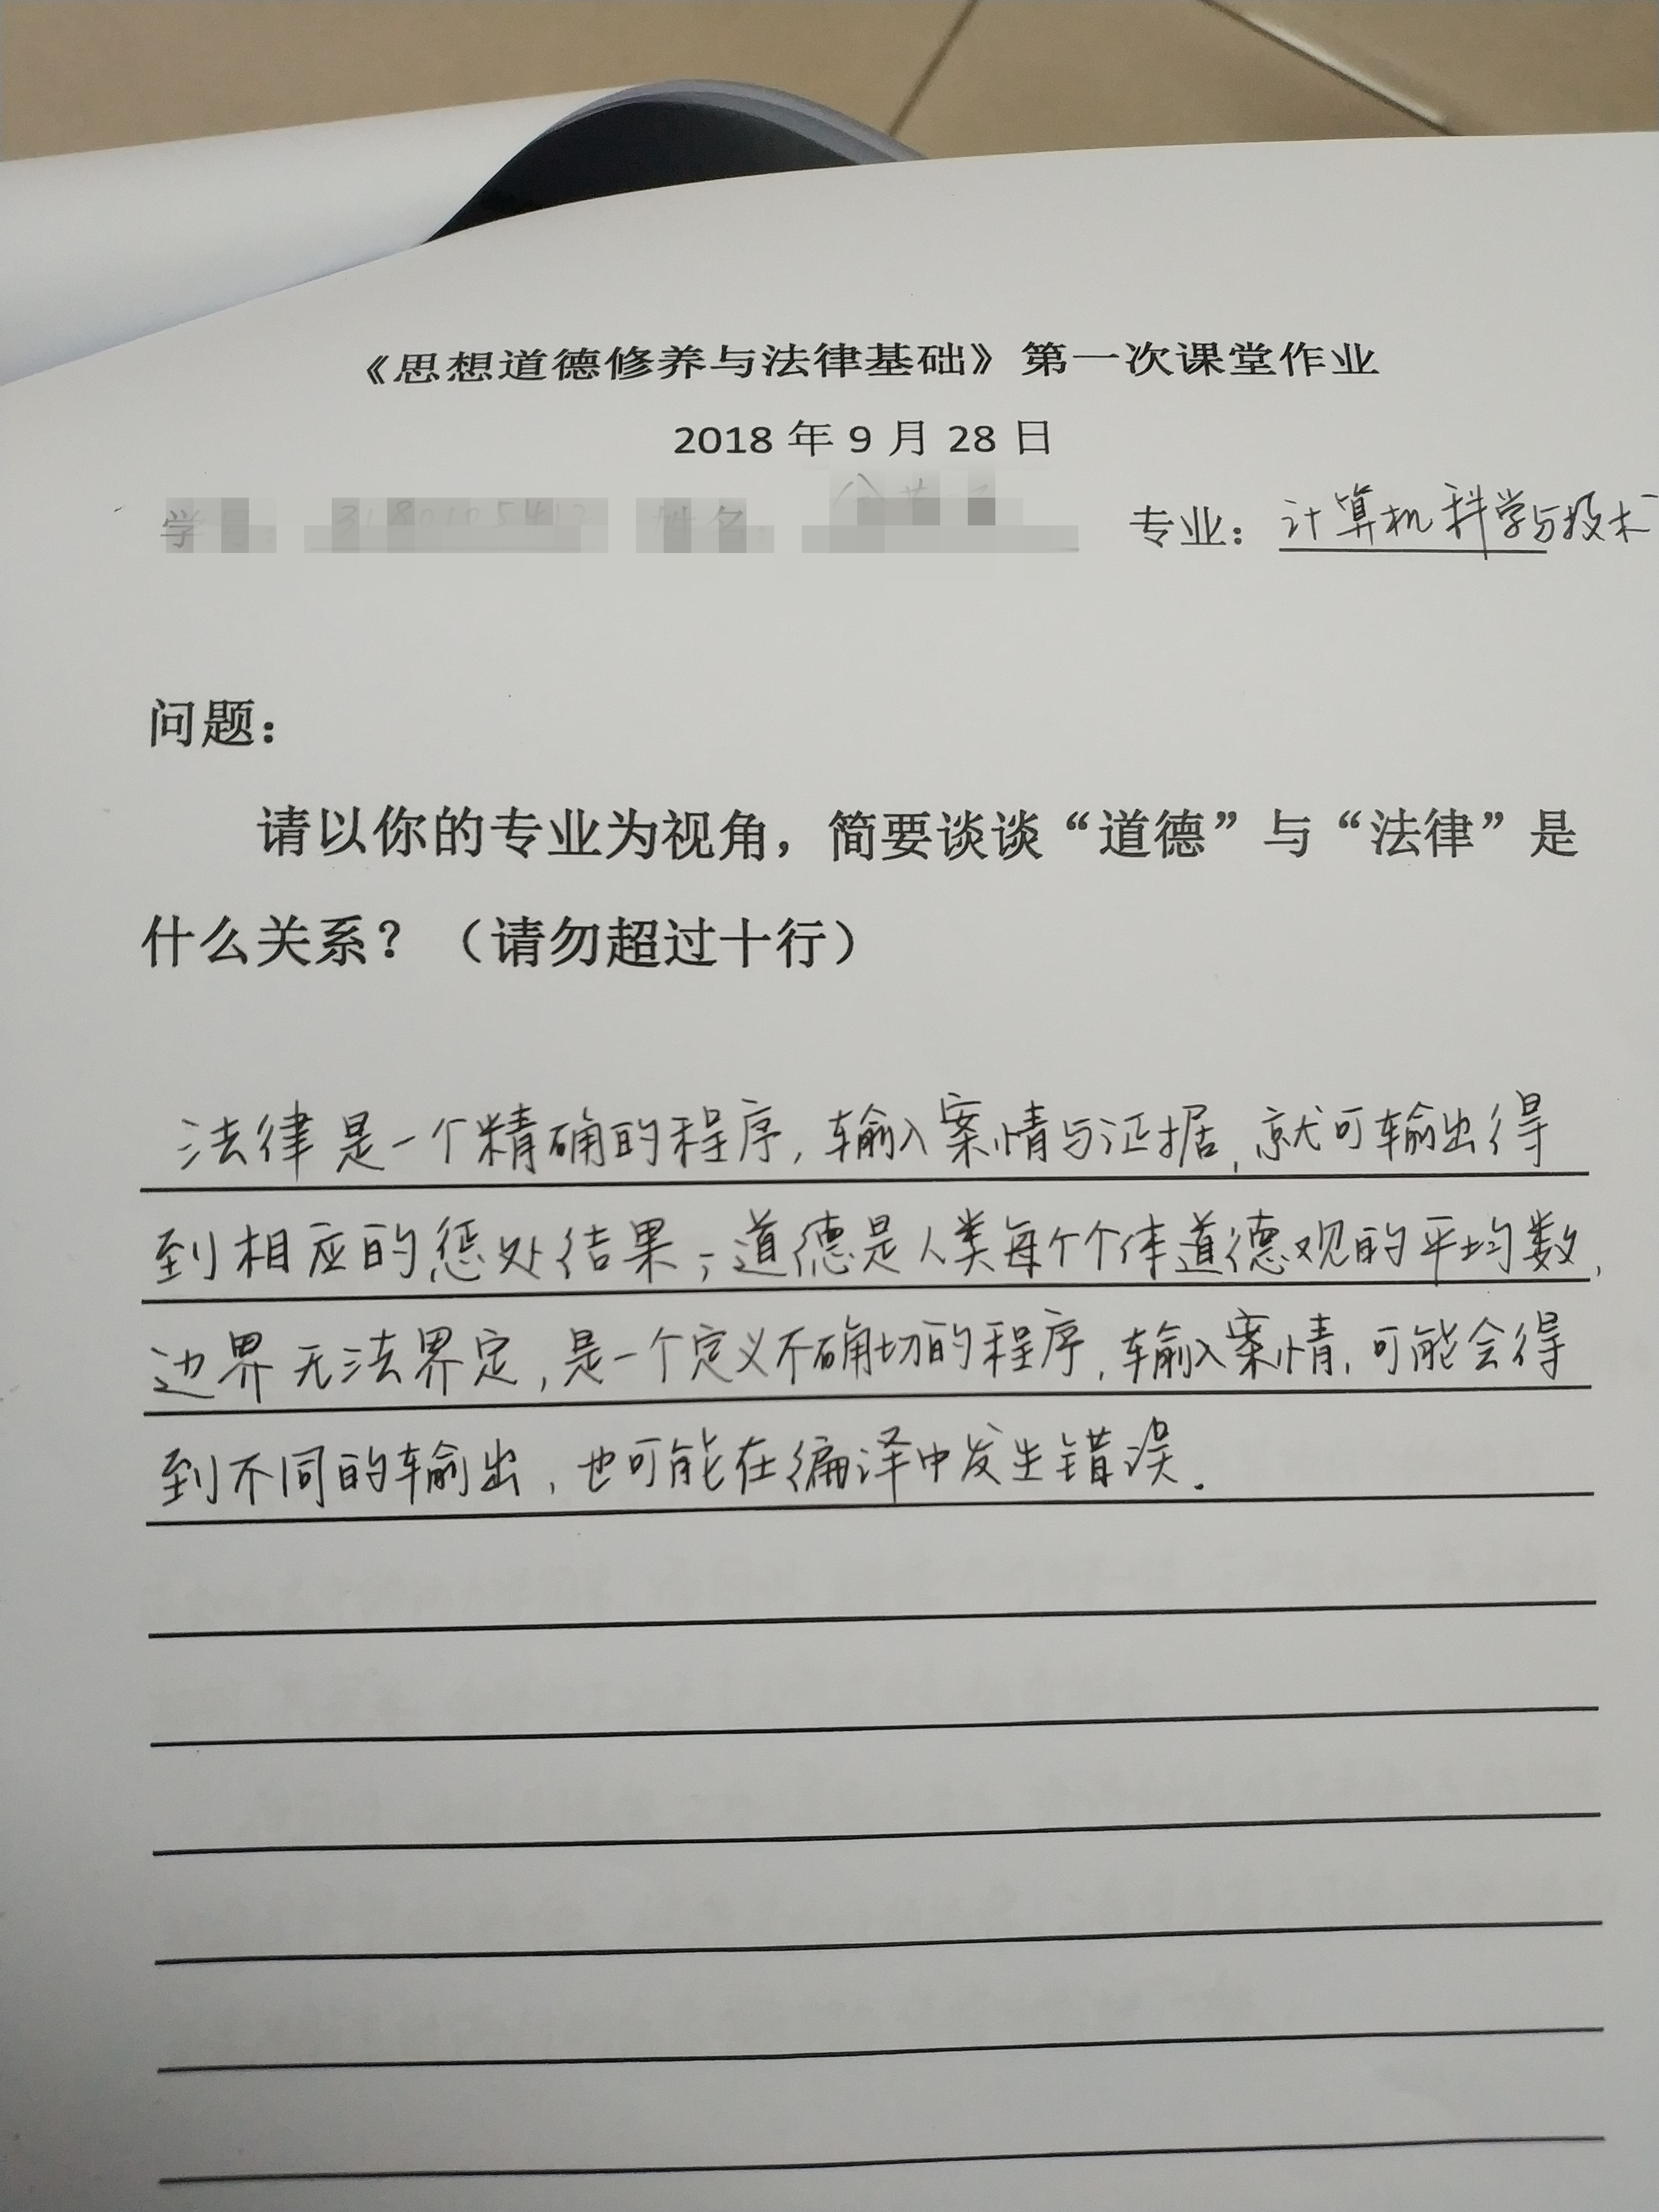 《思想道德修养与法律基础》第一次课堂作业
2018 年 9 月 28 日
学 专业：计算机科学与技术
问题：
请以你的专业为视角，简要谈谈“道德”与“法律”是
什么关系？（请勿超过十行）
法律是一个精确的程序，输入案情与证据，就可输出得
到相应的惩处结果；道德是人类每个个体道德观的平均数，
边界无法界定，是一个定义不确切的程序，输入案情，可能会得
到不同的输出，也可能在编译中发生错误.